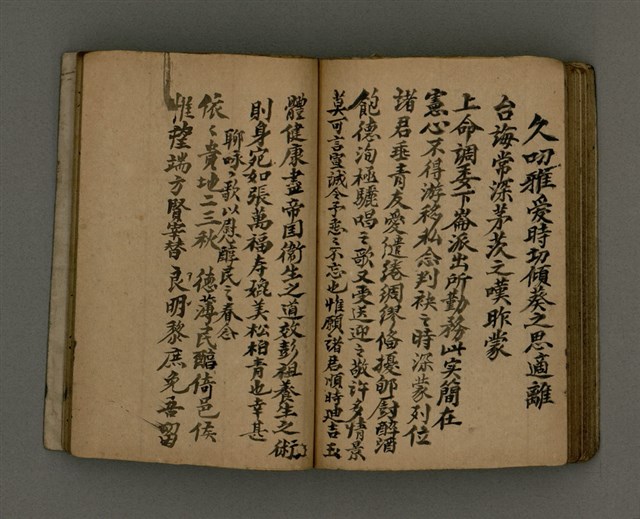 久叨雅愛時切傾葵之思適離
台海常深茅茨之嘆昨蒙
上命調委下崙派出所勤務此实簡在
憲心不得游移私念判袂之時深蒙列位
諸君垂青友愛繾綣綢繆俻擾郇厨醉酒
飽德洵極驪唱之歌又受送迎之敬許多情景
莫可言宣誠令予恋々不忘也惟願諸君順時迪吉玉
體健康盡帝国衛生之道效彭祖養生之術
則身宛如張萬福夲婉美松柏青也幸甚
聊咏之歌以慰酢民之春念
依々貴地二三秋 德薄民醕倚邑侯
惟望端方賢宰替 良明黎庶免吾留